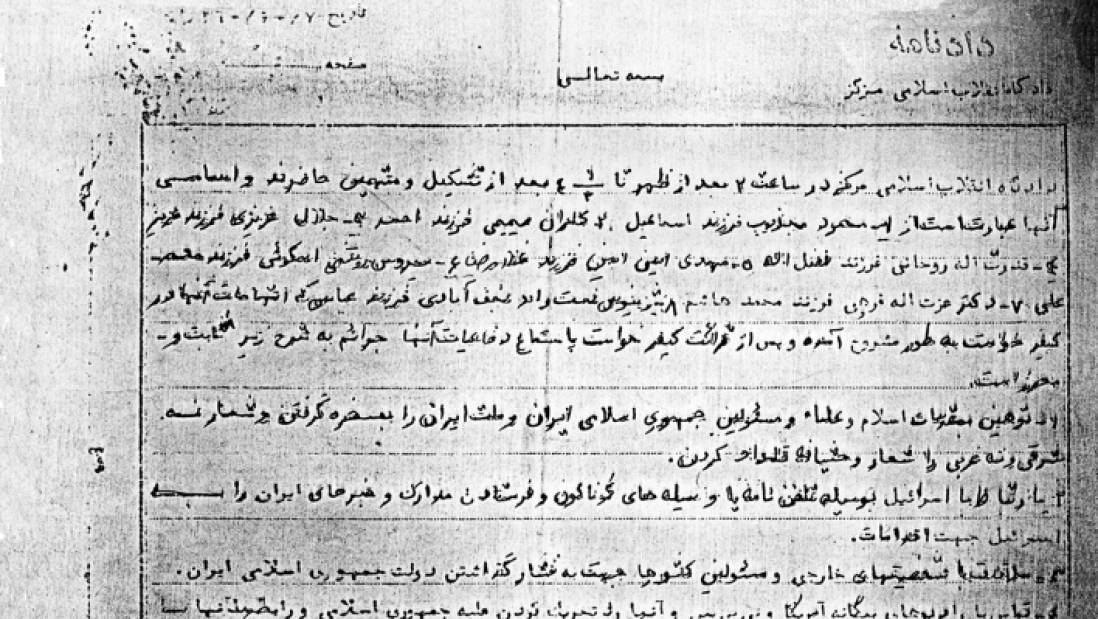 دادنامه
تاریخ
صفحه
بسمه تعالی
دادگاه انقلاب اسلامی مرکز
دادگاه انقلاب اسلامی مرکز در ساعت ۲ بعد از ظهر تا ۴ بعد از تشکیل و متهمین حاضرند و اسامی
آنها عبارتست از ۱- محمود مجذوب فرزند اسماعیل ۲- کامران صمیمی فرزند احمد ۳- جلال عزیزی فرزند عزیز
۴- قدرت اله روحانی فرزند فضل اله ۵- مهدی امین امین فرزند ۶- سیروس فرزند
علی ۷- دکتر عزت اله فروهی فرزند محمد هاشم ۸- نجف آبادی فرزند عباس که اتهامات آنها در
کیفر خواست به طور مشروح آمده و پس از قرائت کیفر خواست با استماع دفاعیات آنها جرائم به شرح زیر ثابت و
محرز است.
۱- توهین بمقدسات اسلام و علماء و مسئولین جمهوری اسلامی ایران و ملت ایران را بمسخره گرفتن و شعار نه
شرقی و نه غربی را شعار وحشیانه قلمداد کردن.
۲- ارتباط با اسرائیل بوسیله تلفن نامه یا وسیله های گوناگون و فرستادن مدارک و خبرهای ایران را به
اسرائیل جهت اقدامات.
۳- ملاقات با شخصیتهای خارجی و مسئولین کشورها جهت به فشار گذاشتن دولت جمهوری اسلامی ایران.
۴- تماس با رادیوهای بیگانه آمریکا و بی بی سی و آنها را تحریک کردن علیه جمهوری اسلامی و